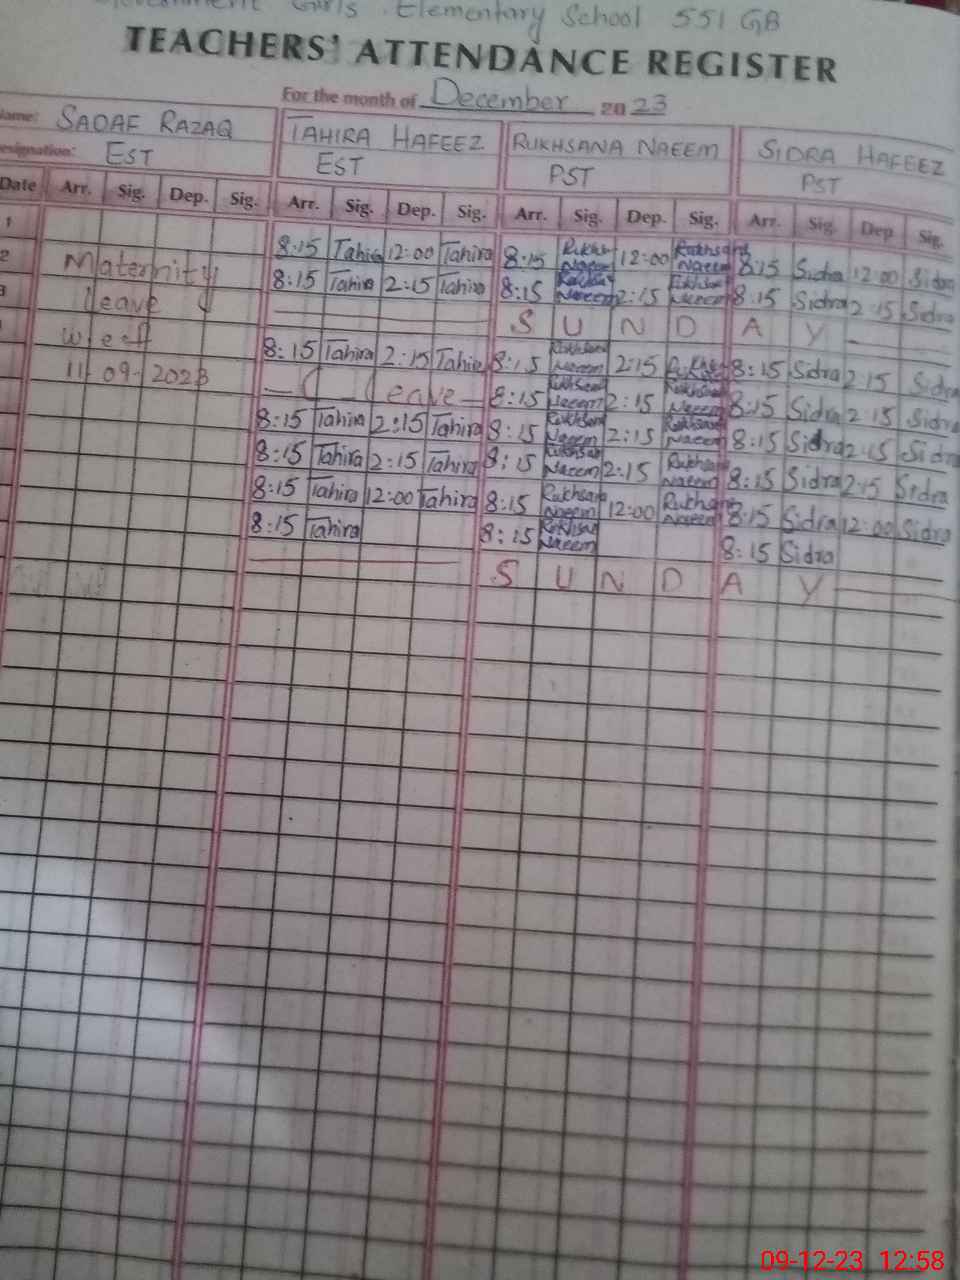 Girls Elementary School 551 GB
TEACHERS' ATTENDANCE REGISTER
For the month of December 2023
Name: SADAF RAZAQ TAHIRA HAFEEZ RUKHSANA NAEEM SIDRA HAFEEZ
Designation: EST EST PST PST
Date Arr. Sig. Dep. Sig. Arr. Sig. Dep. Sig. Arr. Sig. Dep. Sig. Arr. Sig. Dep Sig.
1 8:15 Tahira 12:00 Tahira 8:15 Rukhsana Naeem 12:00 Rukhsana Naeem 8:15 Sidra 12:00 Sidra
2 Maternity 8:15 Tahira 2:15 Tahira 8:15 Rukhsana Naeem 2:15 Rukhsana Naeem 8:15 Sidra 2:15 Sidra
3 leave S U N D A Y
w.e.f 8:15 Tahira 2:15 Tahira 8:15 Rukhsana Naeem 2:15 Rukhsana 8:15 Sidra 2:15 Sidra
11-09-2023 Leave 8:15 Rukhsana Naeem 2:15 Rukhsana Naeem 8:15 Sidra 2:15 Sidra
8:15 Tahira 2:15 Tahira 8:15 Rukhsana Naeem 2:15 Rukhsana Naeem 8:15 Sidra 2:15 Sidra
8:15 Tahira 2:15 Tahira 8:15 Rukhsana Naeem 2:15 Rukhsana Naeem 8:15 Sidra 2:15 Sidra
8:15 Tahira 12:00 Tahira 8:15 Rukhsana Naeem 12:00 Rukhsana Naeem 8:15 Sidra 12:00 Sidra
8:15 Tahira 8:15 Rukhsana Naeem 8:15 Sidra
S U N D A Y
09-12-23 12:58